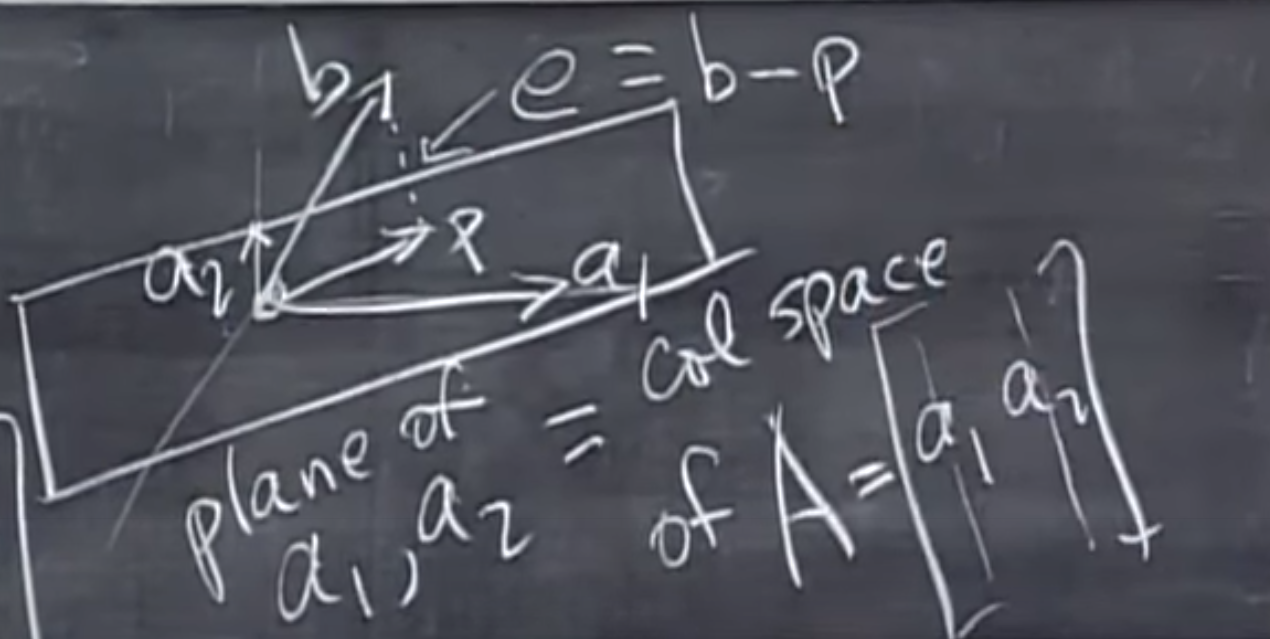 b
e = b - p
a2
p
a1
plane of a1, a2 = col space of A = [a1 a2]